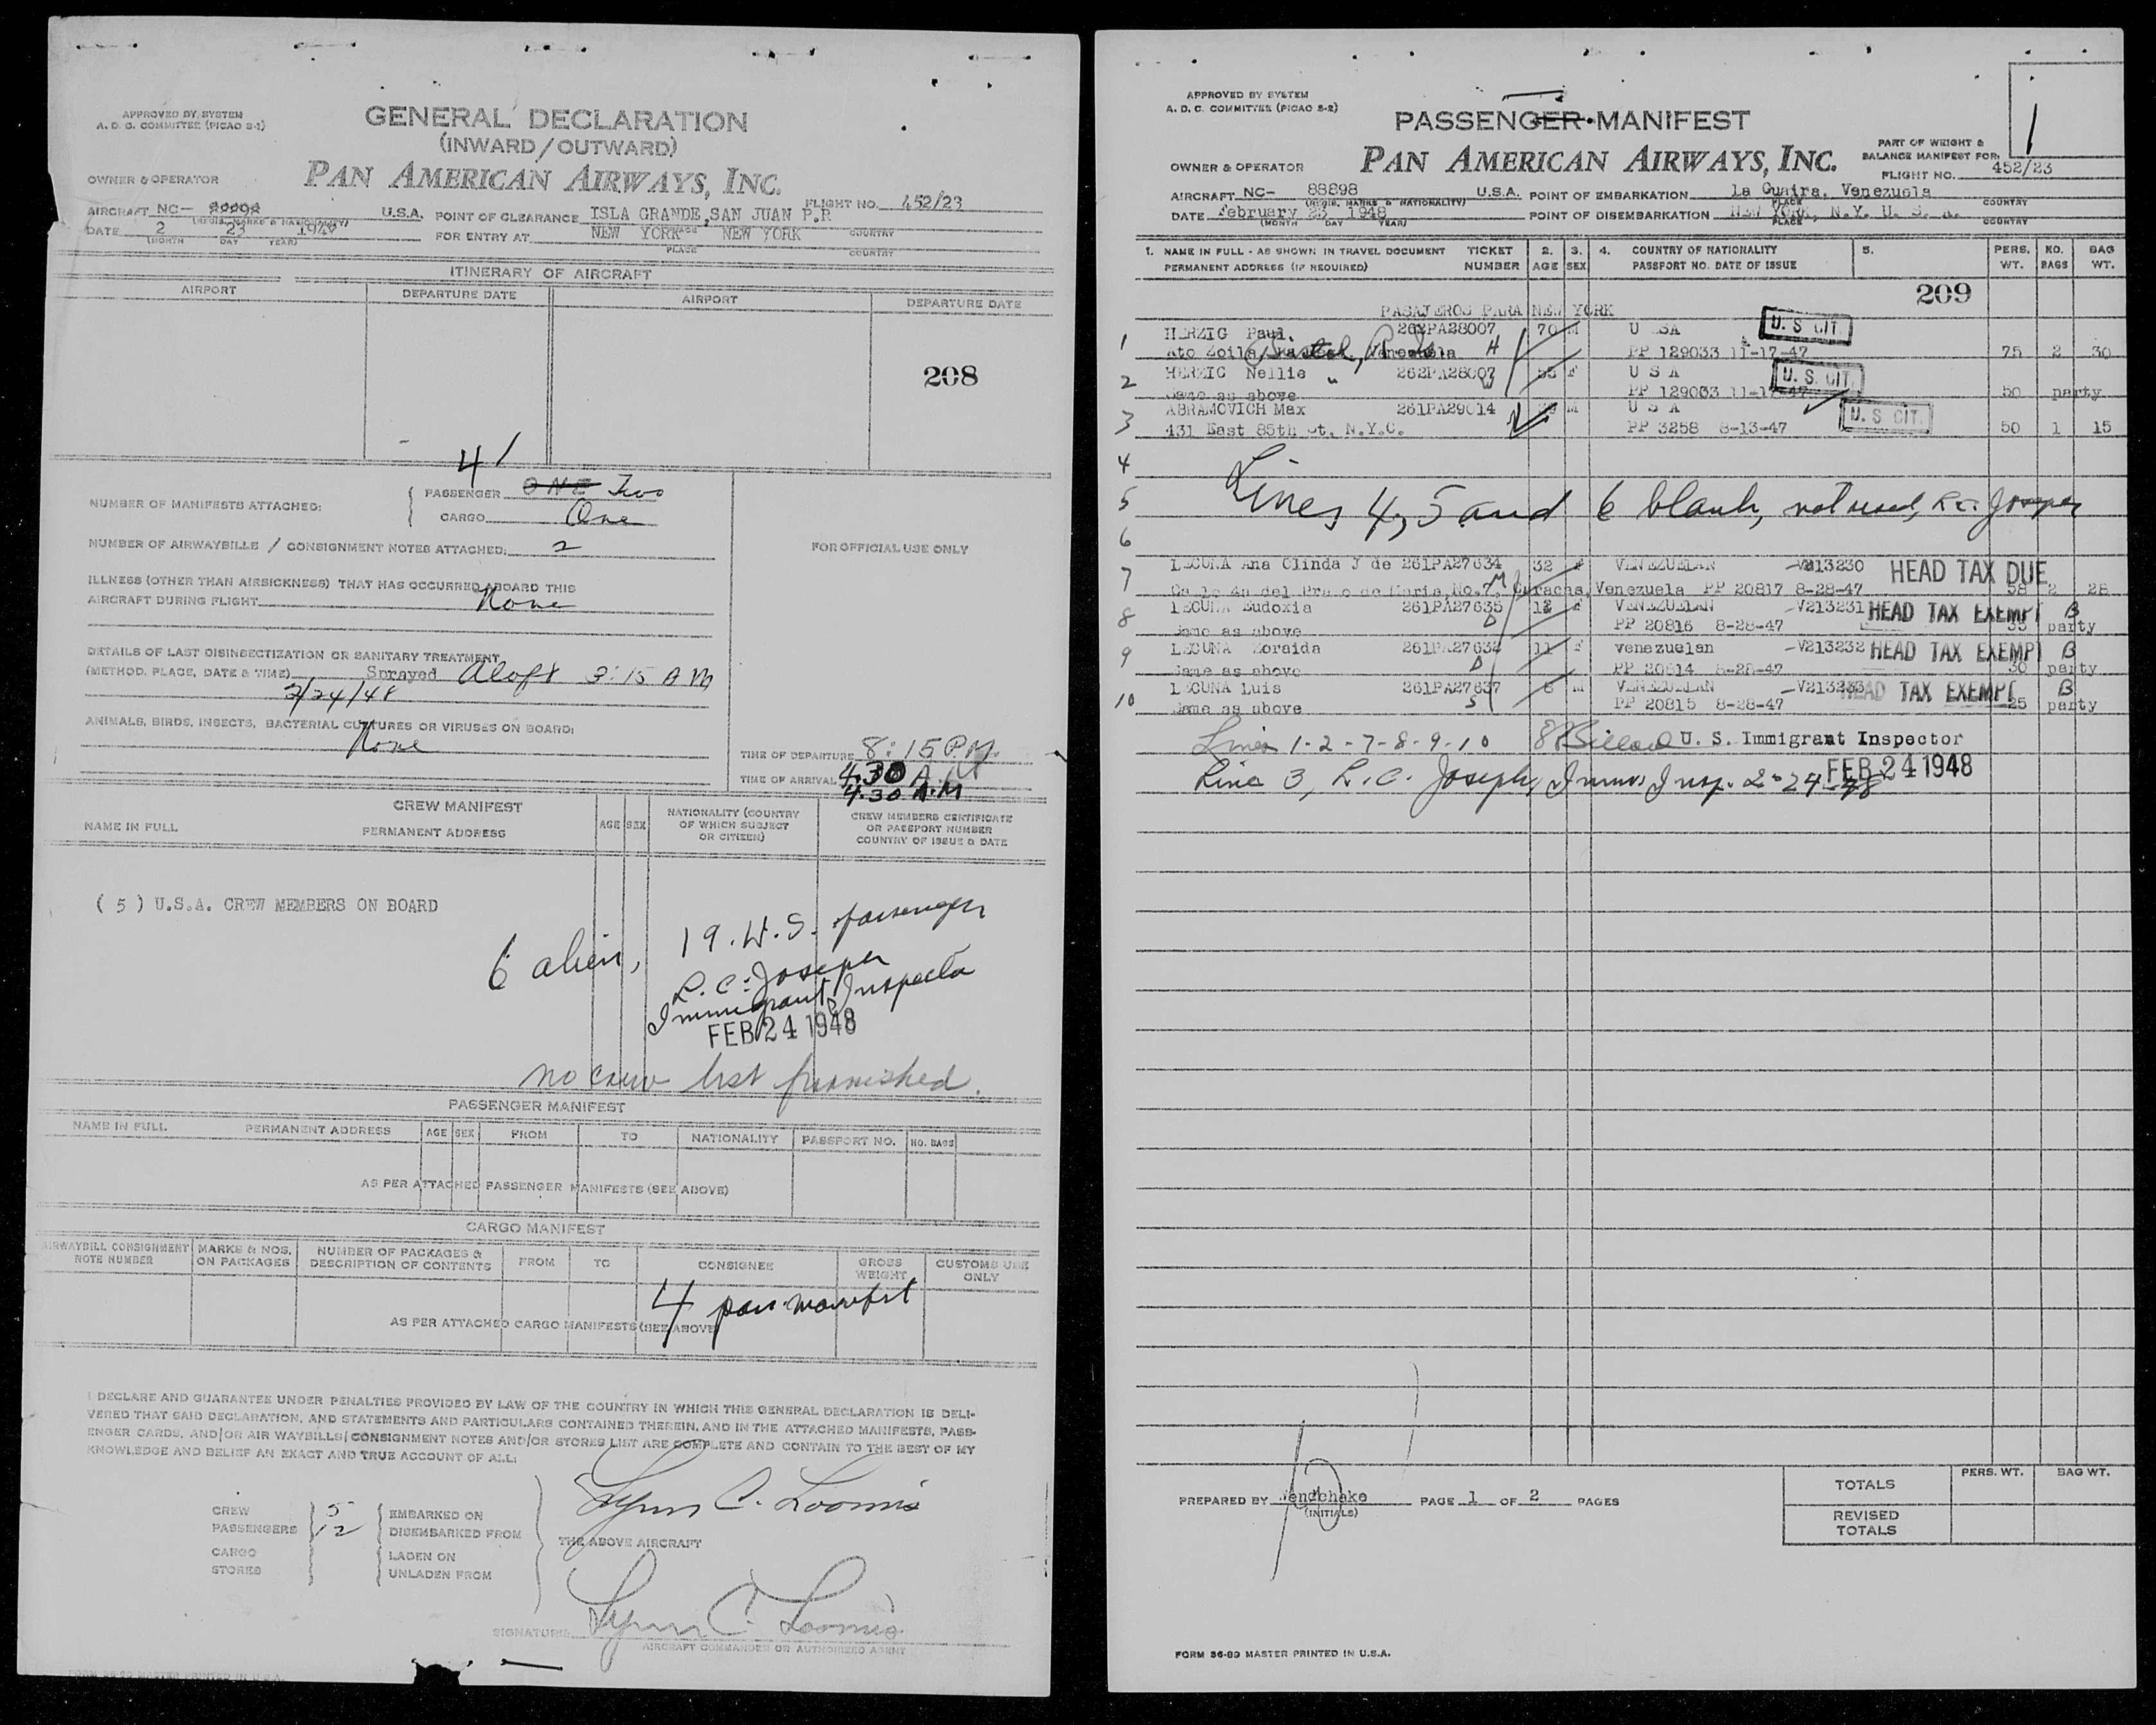 APPROVED BY SYSTEM
A. D. C. COMMITTEE (PICAO S-1)
GENERAL DECLARATION
(INWARD/OUTWARD)
PAN AMERICAN AIRWAYS, INC.
OWNER & OPERATOR
FLIGHT NO. 452/23
AIRCRAFT NC- U.S.A. POINT OF CLEARANCE ISLA GRANDE, SAN JUAN P.R
(REGIS. MARKS & NATIONALITY)
DATE 2 23 1948 FOR ENTRY AT NEW YORK NEW YORK COUNTRY
(MONTH DAY YEAR) PLACE COUNTRY
ITINERARY OF AIRCRAFT
AIRPORT DEPARTURE DATE AIRPORT DEPARTURE DATE
208
4
NUMBER OF MANIFESTS ATTACHED: PASSENGER ONE Two
CARGO One
NUMBER OF AIRWAYBILLS / CONSIGNMENT NOTES ATTACHED: 2
FOR OFFICIAL USE ONLY
ILLNESS (OTHER THAN AIRSICKNESS) THAT HAS OCCURRED ABOARD THIS
AIRCRAFT DURING FLIGHT None
DETAILS OF LAST DISINSECTIZATION OR SANITARY TREATMENT
(METHOD, PLACE, DATE & TIME) Sprayed Aloft 3:15 AM
2/24/48
ANIMALS, BIRDS, INSECTS, BACTERIAL CULTURES OR VIRUSES ON BOARD:
None
TIME OF DEPARTURE 8:15 PM
TIME OF ARRIVAL 4:30 A.M
4.30 A.M
CREW MANIFEST
NAME IN FULL PERMANENT ADDRESS AGE SEX NATIONALITY (COUNTRY OF WHICH SUBJECT OR CITIZEN) CREW MEMBERS CERTIFICATE OR PASSPORT NUMBER COUNTRY OF ISSUE & DATE
( 5 ) U.S.A. CREW MEMBERS ON BOARD
6 alien, 19. U.S. passenger
R. C. Joseph
Immigrant Inspector
FEB 24 1948
no crew list furnished.
PASSENGER MANIFEST
NAME IN FULL PERMANENT ADDRESS AGE SEX FROM TO NATIONALITY PASSPORT NO. NO. BAGS
AS PER ATTACHED PASSENGER MANIFESTS (SEE ABOVE)
CARGO MANIFEST
AIRWAYBILL CONSIGNMENT NOTE NUMBER MARKS & NOS. ON PACKAGES NUMBER OF PACKAGES & DESCRIPTION OF CONTENTS FROM TO CONSIGNEE GROSS WEIGHT CUSTOMS USE ONLY
4 pass manifest
AS PER ATTACHED CARGO MANIFESTS (SEE ABOVE)
I DECLARE AND GUARANTEE UNDER PENALTIES PROVIDED BY LAW OF THE COUNTRY IN WHICH THIS GENERAL DECLARATION IS DELI-
VERED THAT SAID DECLARATION, AND STATEMENTS AND PARTICULARS CONTAINED THEREIN, AND IN THE ATTACHED MANIFESTS, PASS-
ENGER CARDS, AND/OR AIR WAYBILLS/CONSIGNMENT NOTES AND/OR STORES LIST ARE COMPLETE AND CONTAIN TO THE BEST OF MY
KNOWLEDGE AND BELIEF AN EXACT AND TRUE ACCOUNT OF ALL:
CREW 5 EMBARKED ON
PASSENGERS 12 DISEMBARKED FROM
CARGO LADEN ON
STORES UNLADEN FROM
Lynn C. Loomis
THE ABOVE AIRCRAFT
SIGNATURE Lynn C. Loomis
AIRCRAFT COMMANDER OR AUTHORIZED AGENT
FORM 36-29 MASTER PRINTED IN U.S.A.
1
APPROVED BY SYSTEM
A. D. C. COMMITTEE (PICAO S-2)
PASSENGER MANIFEST
PAN AMERICAN AIRWAYS, INC.
OWNER & OPERATOR
PART OF WEIGHT &
BALANCE MANIFEST FOR:
FLIGHT NO. 452/23
AIRCRAFT NC- 88898 U.S.A. POINT OF EMBARKATION La Guaira, Venezuela
(REGIS. MARKS & NATIONALITY) PLACE COUNTRY
DATE February 23 1948 POINT OF DISEMBARKATION NEW YORK, N.Y. U. S. A.
(MONTH DAY YEAR) PLACE COUNTRY
1. NAME IN FULL - AS SHOWN IN TRAVEL DOCUMENT TICKET 2. 3. 4. COUNTRY OF NATIONALITY 5. PERS. NO. BAG
PERMANENT ADDRESS (IF REQUIRED) NUMBER AGE SEX PASSPORT NO. DATE OF ISSUE WT. BAGS WT.
209
PASAJEROS PARA NEW YORK
1 HERZIG Paul. 262PA28007 70 M U SA U. S CIT.
Venezuela H PP 129033 11-17-47 75 2 30
2 HERZIG Nellie " 262PA28007 F U S A U. S. CIT.
Same as above PP 129033 11-17-47 50 party
3 ABRAMOVICH Max 261PA29014 M U S A U. S CIT.
431 East 85th St, N.Y.C. PP 3258 8-13-47 50 1 15
4
5 Lines 4, 5 and 6 blank, not used, R.C. Joseph
6
7 LECUNA Ana Olinda J de 261PA27634 32 F VENEZUELAN V213230 HEAD TAX DUE
No.7, Caracas, Venezuela PP 20817 8-28-47 58 2 28
8 LECUNA Eudoxia 261PA27635 12 F VENEZUELAN V213231 HEAD TAX EXEMPT B
Same as above D PP 20816 8-28-47 35 party
9 LECUNA Zoraida 261PA27632 11 F venezuelan V213232 HEAD TAX EXEMPT B
Same as above D PP 20814 8-28-47 30 party
10 LECUNA Luis 261PA27637 6 M VENEZUELAN V213233 HEAD TAX EXEMPT B
Same as above S PP 20815 8-28-47 25 party
Lines 1-2-7-8-9-10 U. S. Immigrant Inspector
FEB 24 1948
Line 3, R. C. Joseph, Immi. Insp. 2-24-48
PREPARED BY PAGE 1 OF 2 PAGES
(INITIALS)
TOTALS PERS. WT. BAG WT.
REVISED
TOTALS
FORM 36-89 MASTER PRINTED IN U.S.A.